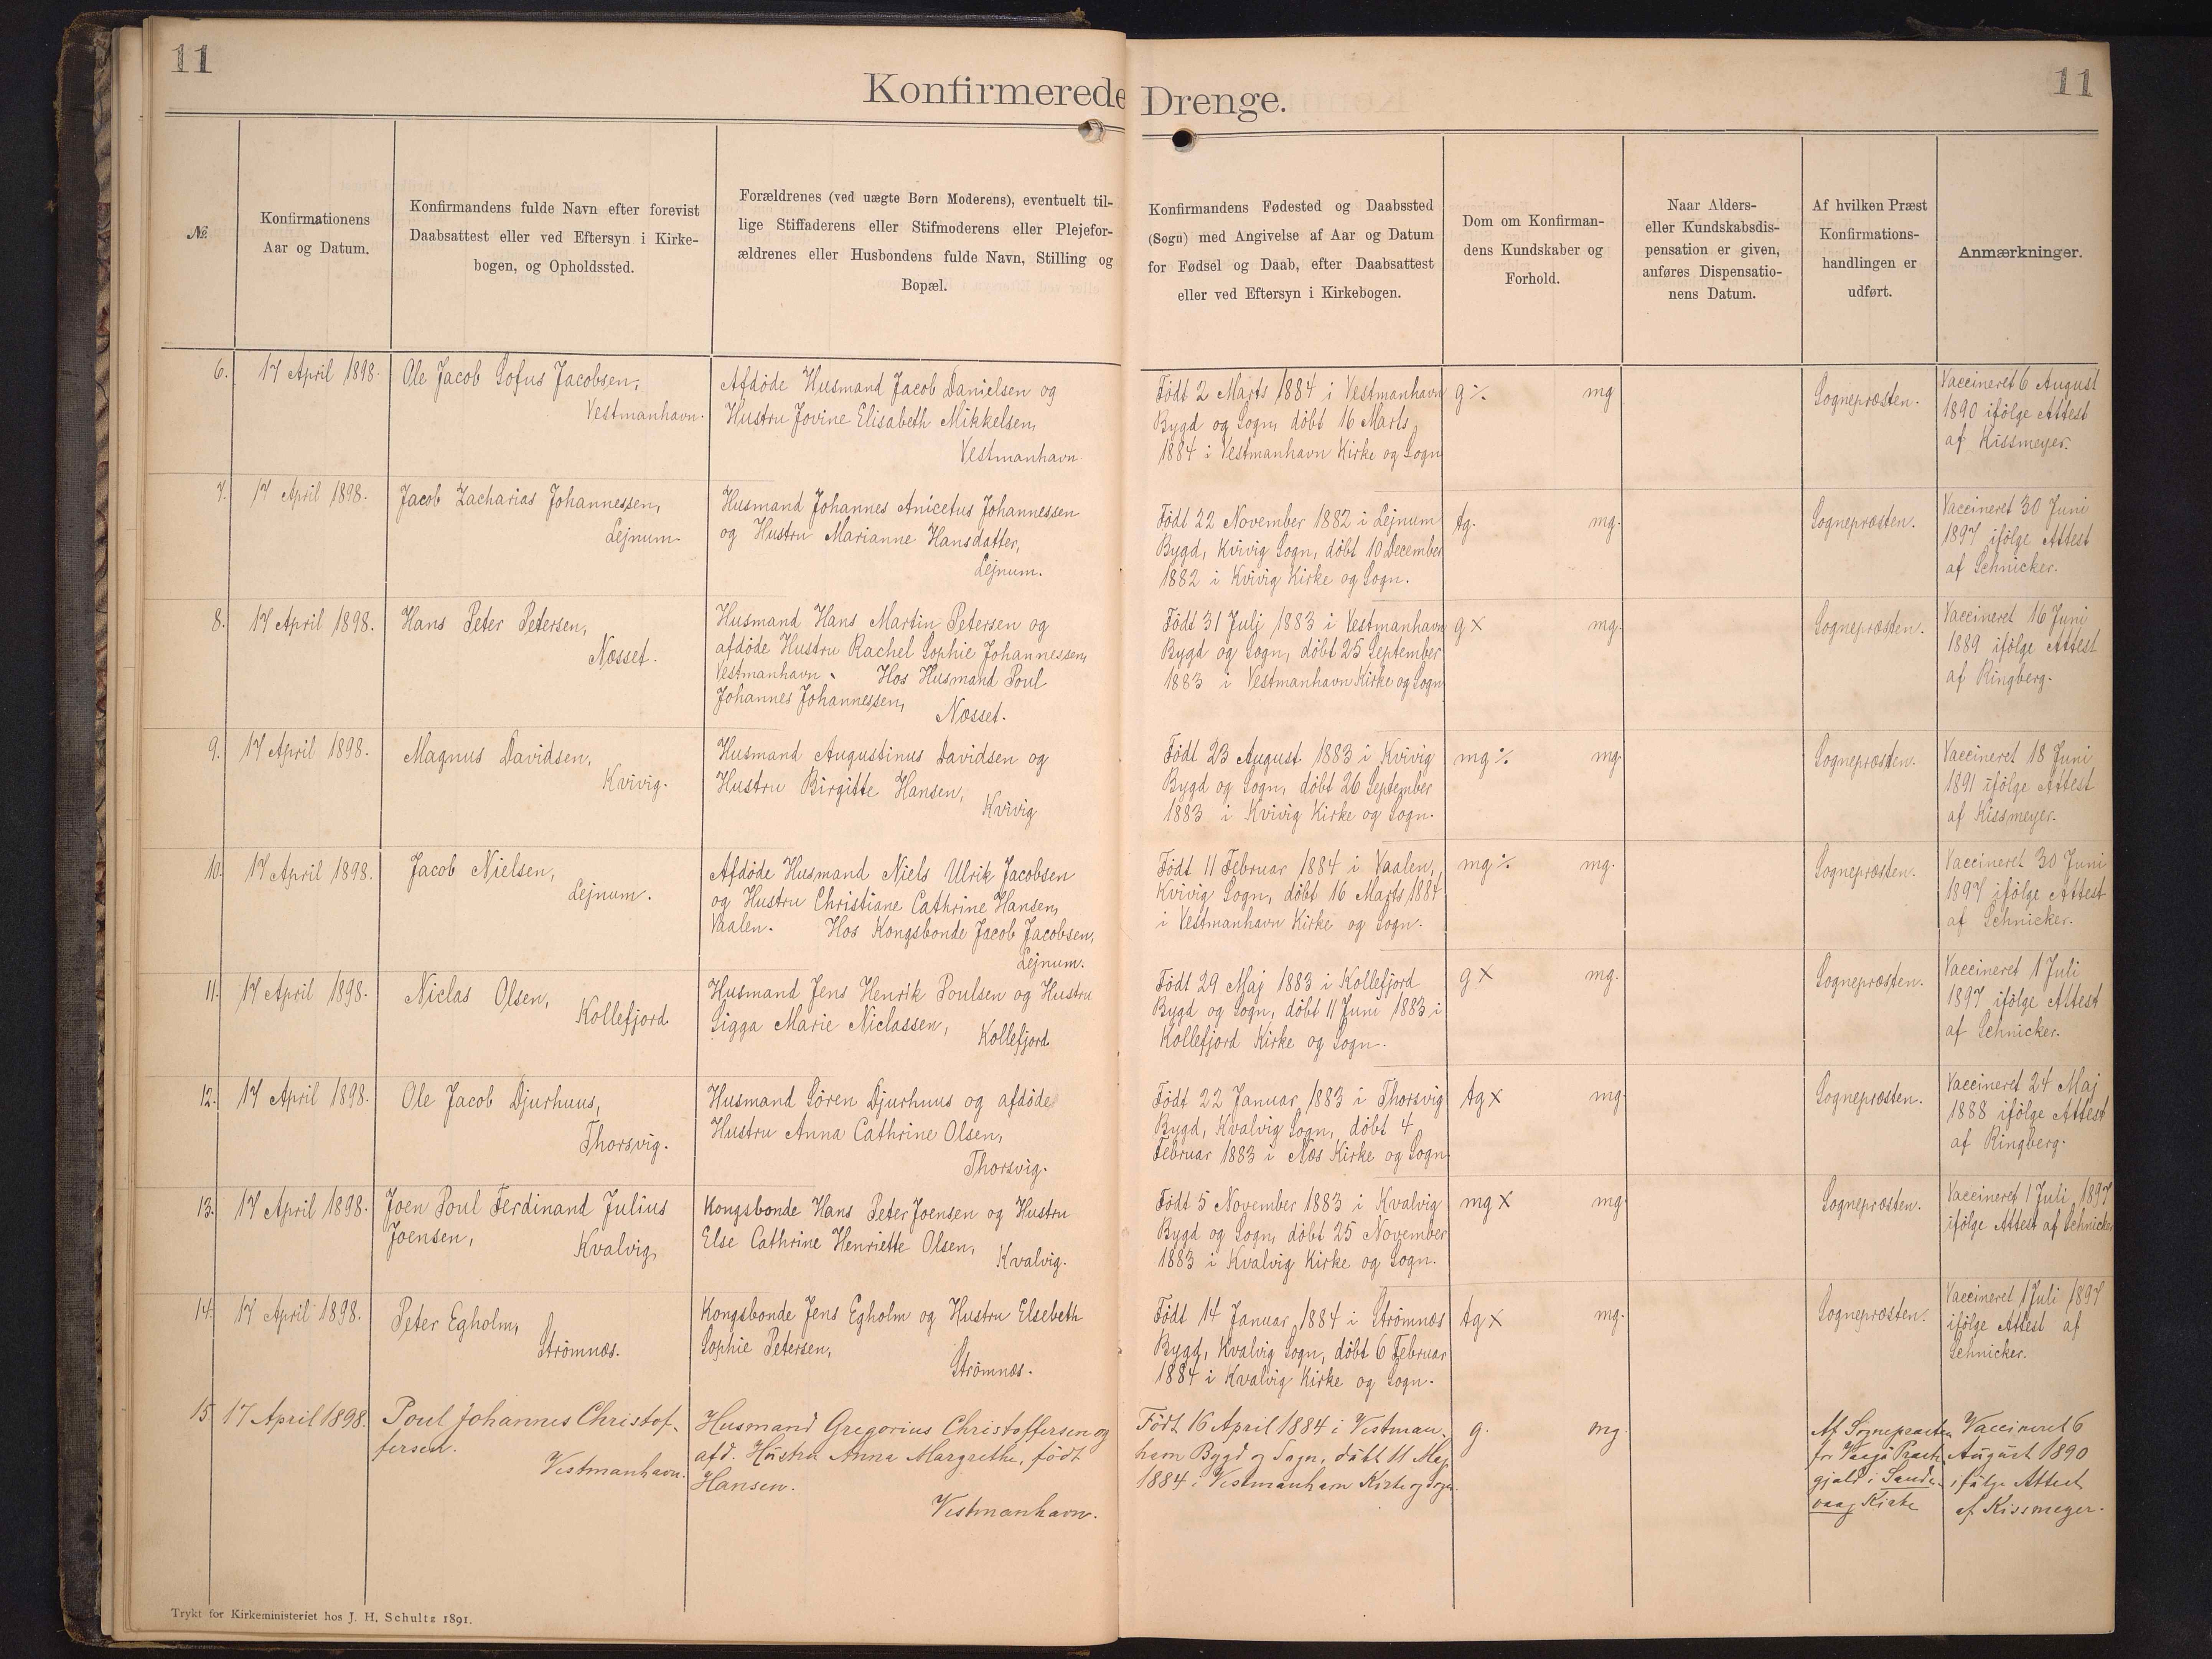 11
Konfirmerede Drenge.
11
№
Konfirmationens
Aar og Datum.
Konfirmandens fulde Navn efter forevist
Daabsattest eller ved Eftersyn i Kirke-
bogen, og Opholdssted.
Forældrenes (ved uægte Børn Moderens), eventuelt til-
lige Stiffaderens eller Stifmoderens eller Plejefor-
ældrenes eller Husbondens fulde Navn, Stilling og
Bopæl.
Konfirmandens Fødested og Daabssted
(Sogn) med Angivelse af Aar og Datum
for Fødsel og Daab, efter Daabsattest
eller ved Eftersyn i Kirkebogen.
Dom om Konfirman-
dens Kundskaber og
Forhold.
Naar Alders-
eller Kundskabsdis-
pensation er given,
anføres Dispensatio-
nens Datum.
Af hvilken Præst
Konfirmations-
handlingen er
udført.
Anmærkninger.
6.
17 April 1898.
Ole Jacob Sofus Jacobsen,
Vestmanhavn.
Afdöde Husmand Jacob Danielsen og
Hustru Jovine Elisabeth Mikkelsen,
Vestmanhavn.
Födt 2 Marts 1884 i Vestmanhavn
Bygd og Sogn, döbt 16 Marts
1884 i Vestmanhavn Kirke og Sogn
g ÷
mg
Sognepræsten.
Vaccineret 6 August
1890 ifölge Attest
af Kissmeyer.
7.
17 April 1898.
Jacob Zacharias Johannessen,
Lejnum.
Husmand Johannes Anicetus Johannessen
og Hustru Marianne Hansdatter,
Lejnum.
Födt 22 November 1882 i Lejnum
Bygd, Kvivig Sogn, döbt 10 December
1882 i Kvivig Kirke og Sogn.
tg.
mg.
Sognepræsten.
Vaccineret 30 Juni
1897 ifölge Attest
af Schnicker.
8.
17 April 1898.
Hans Peter Petersen,
Næsset.
Husmand Hans Martin Petersen og
afdöde Hustru Rachel Sophie Johannessen,
Vestmanhavn. Hos Husmand Poul
Johannes Johannessen,
Næsset.
Födt 31 Juli 1883 i Vestmanhavn
Bygd og Sogn, döbt 25 September
1883 i Vestmanhavn Kirke og Sogn
g ×
mg.
Sognepræsten.
Vaccineret 16 Juni
1889 ifölge Attest
af Ringberg.
9.
17 April 1898.
Magnus Davidsen,
Kvivig.
Husmand Augustinus Davidsen og
Hustru Birgitte Hansen,
Kvivig
Födt 23 August 1883 i Kvivig
Bygd og Sogn, döbt 26 September
1883 i Kvivig Kirke og Sogn.
mg ÷
mg.
Sognepræsten.
Vaccineret 18 Juni
1891 ifölge Attest
af Kissmeyer.
10.
17 April 1898.
Jacob Nielsen,
Lejnum.
Afdöde Husmand Niels Ulrik Jacobsen
og Hustru Christiane Cathrine Hansen,
Vaalen. Hos Kongsbonde Jacob Jacobsen,
Lejnum.
Födt 11 Februar 1884 i Vaalen,
Kvivig Sogn, döbt 16 Marts 1884
i Vestmanhavn Kirke og Sogn.
mg ÷
mg.
Sognepræsten.
Vaccineret 30 Juni
1897 ifölge Attest
af Schnicker.
11.
17 April 1898.
Niclas Olsen,
Kollefjord.
Husmand Jens Henrik Poulsen og Hustru
Sigga Marie Niclassen,
Kollefjord.
Födt 29 Maj 1883 i Kollefjord
Bygd og Sogn, döbt 11 Juni 1883 i
Kollefjord Kirke og Sogn.
g ×
mg.
Sognepræsten.
Vaccineret 1 Juli
1897 ifölge Attest
af Schnicker.
12.
17 April 1898.
Ole Jacob Djurhuus,
Thorsvig.
Husmand Sören Djurhuus og afdöde
Hustru Anna Cathrine Olsen,
Thorsvig.
Födt 22 Januar 1883 i Thorsvig
Bygd, Kvalvig Sogn, döbt 4
Februar 1883 i Næs Kirke og Sogn
tg ×
mg.
Sognepræsten.
Vaccineret 24 Maj
1888 ifölge Attest
af Ringberg.
13.
17 April 1898.
Joen Poul Ferdinand Julius
Joensen,
Kvalvig
Kongsbonde Hans Peter Joensen og Hustru
Else Cathrine Henriette Olsen,
Kvalvig.
Födt 5 November 1883 i Kvalvig
Bygd og Sogn, döbt 25 November
1883 i Kvalvig Kirke og Sogn.
mg ×
mg.
Sognepræsten.
Vaccineret 1 Juli 1897
ifölge Attest af Schnicker
14.
17 April 1898.
Peter Egholm,
Strömnæs.
Kongsbonde Jens Egholm og Hustru Elsebeth
Sophie Petersen,
Strömnæs.
Födt 14 Januar 1884 i Strömnæs
Bygd, Kvalvig Sogn, döbt 6 Februar
1884 i Kvalvig Kirke og Sogn.
tg ×
mg.
Sognepræsten.
Vaccineret 1 Juli 1897
ifölge Attest af
Schnicker.
15.
17 April 1898.
Poul Johannes Christof-
fersen.
Vestmanhavn.
Husmand Gregorius Christoffersen og
afd. Hustru Anna Margrethe, födt
Hansen.
Vestmanhavn.
Födt 16 April 1884 i Vestman-
havn Bygd og Sogn, döbt 11 Maj
1884 i Vestmanhavn Kirke og Sogn.
g.
mg.
Af Sognepræsten
for Vaagö Præste
gjald i Sande-
vaag Kirke
Vaccineret 6
August 1890
ifölge Attest
af Kissmeyer.
Trykt for Kirkeministeriet hos J. H. Schultz 1891.